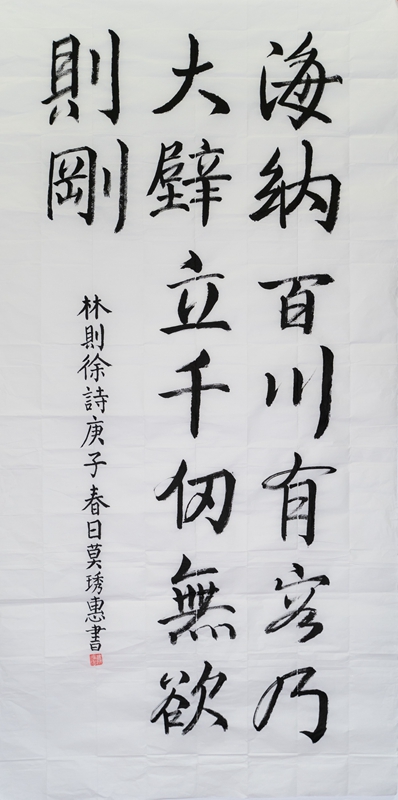 海納百川有容乃
大壁立千仞無欲
則剛
林則徐詩庚子春日莫琇惠書